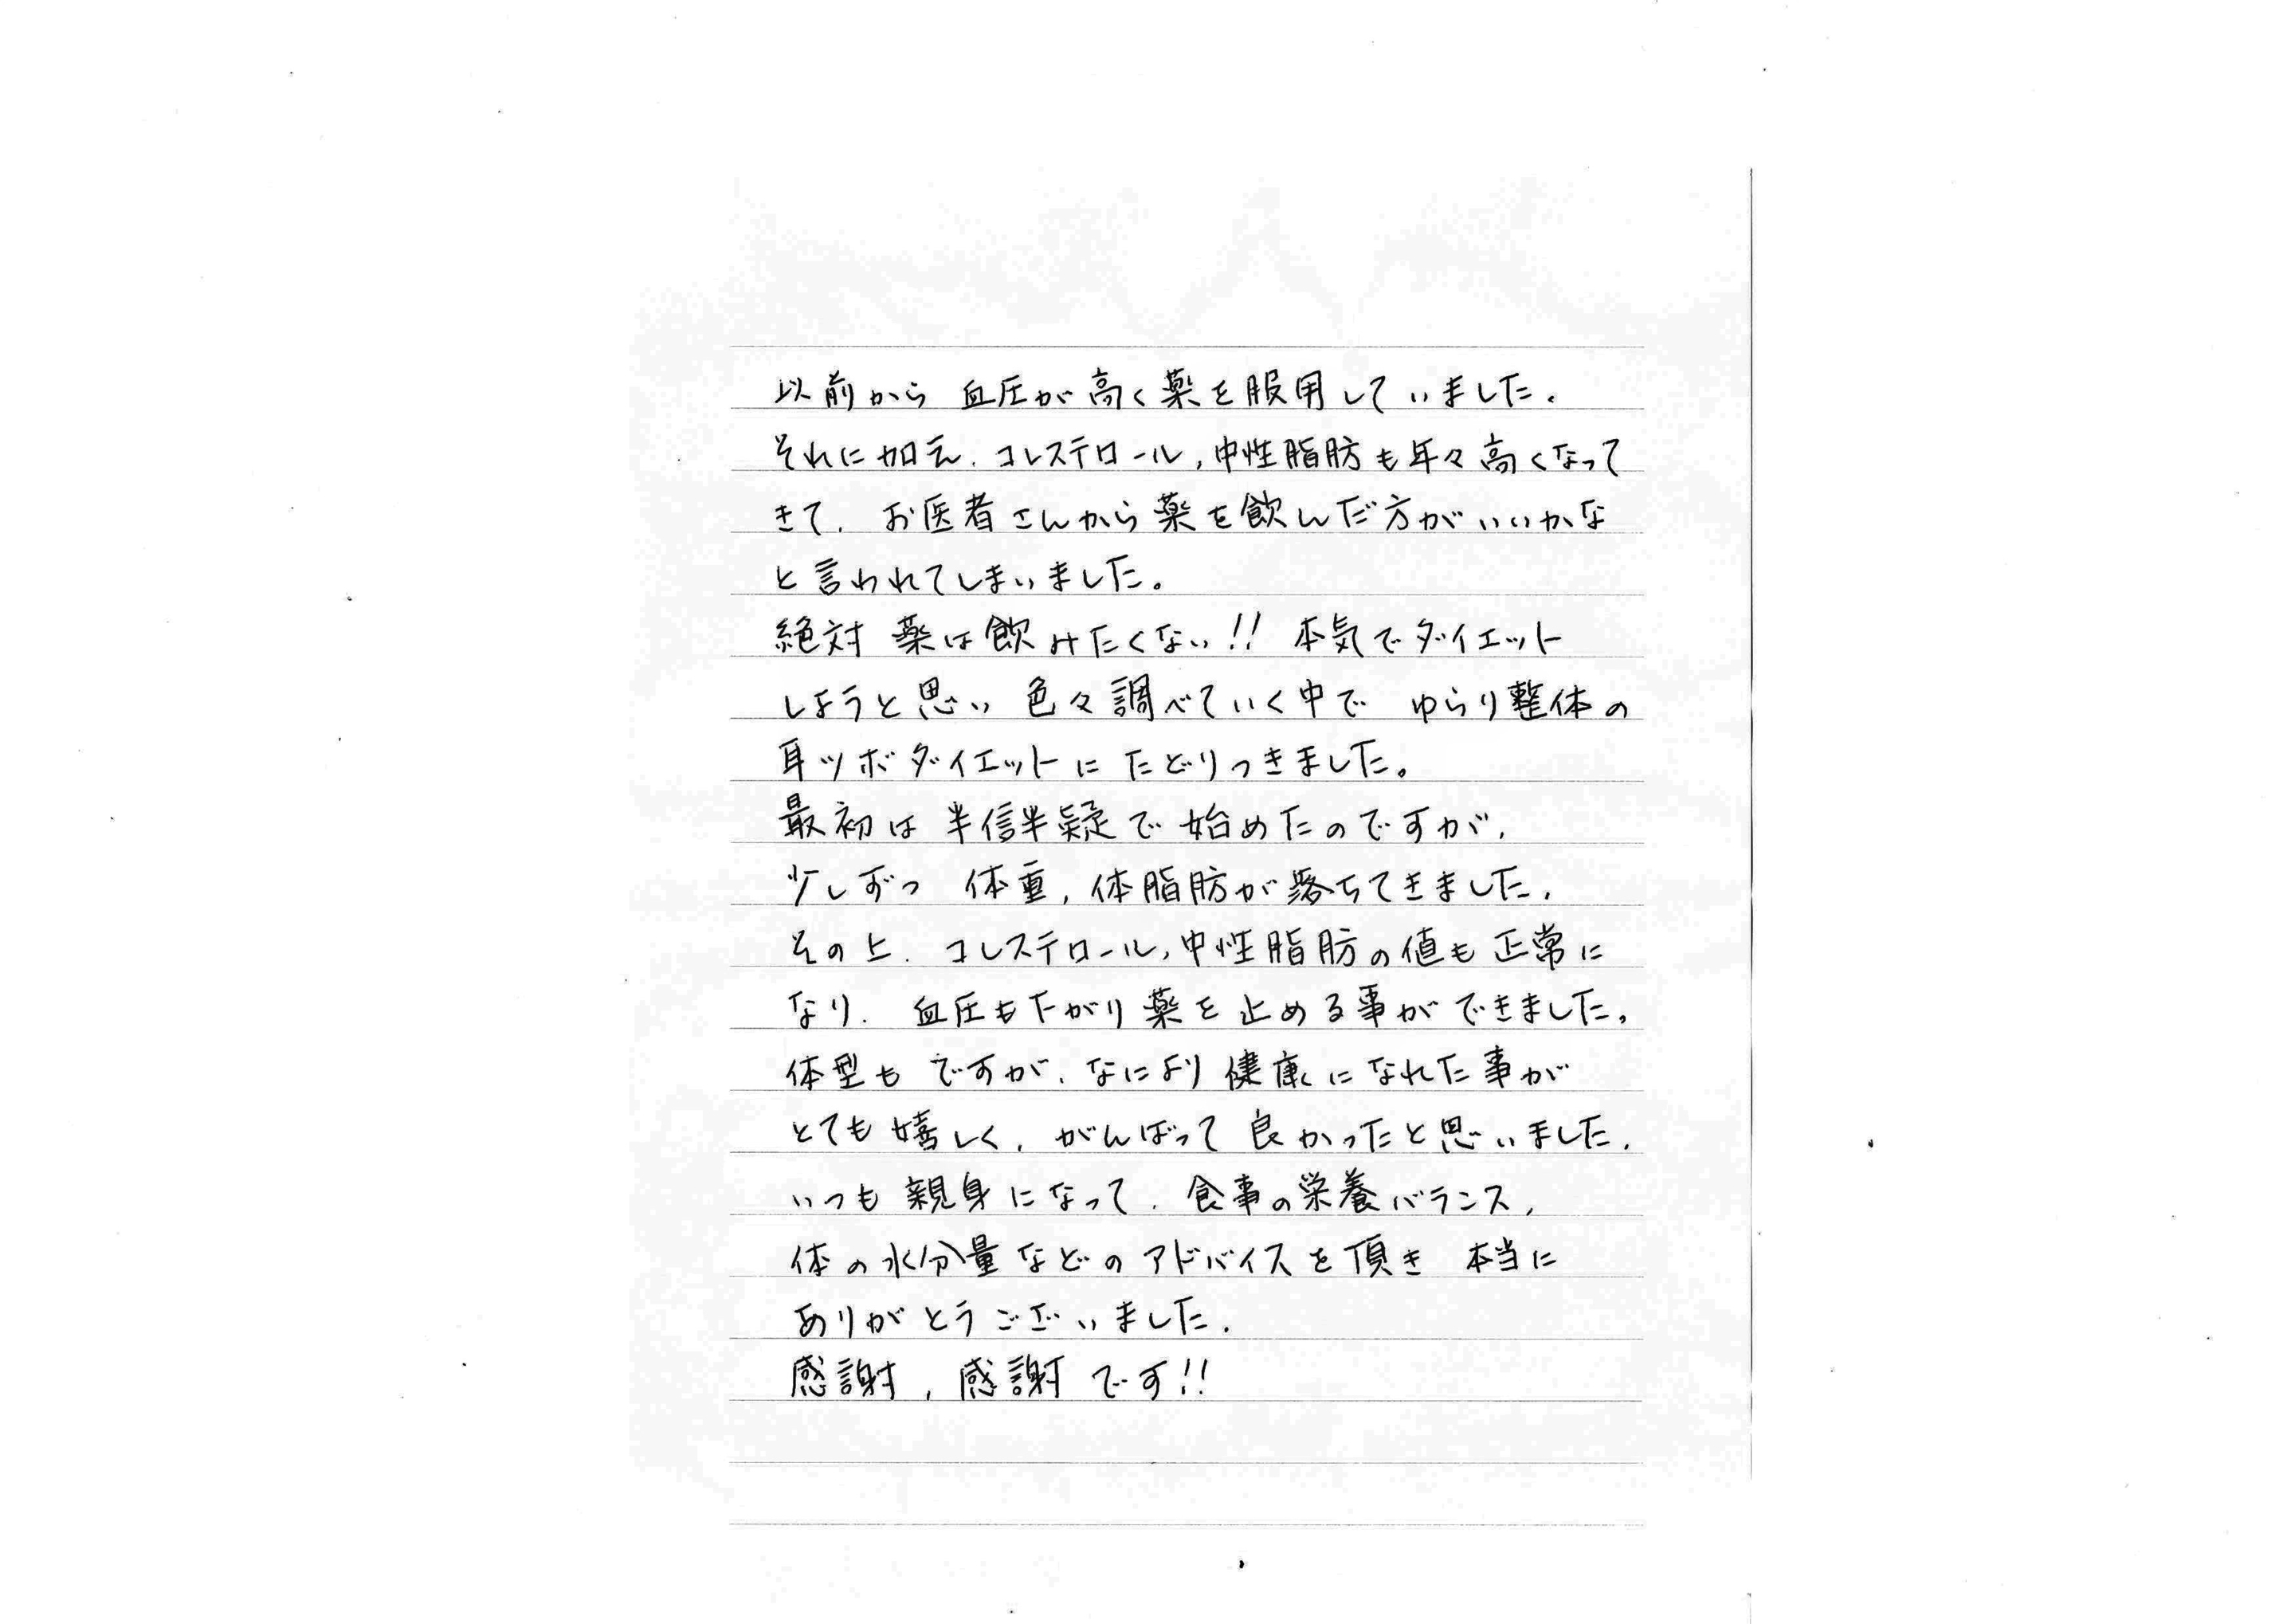 以前から 血圧が高く薬を服用していました.
それに加え. コレステロール, 中性脂肪も年々高くなって
きて. お医者さんから薬を飲んだ方がいいかな
と言われてしまいました。
絶対 薬は飲みたくない!! 本気でダイエット
しようと思い 色々調べていく中で ゆらり整体の
耳ツボダイエットに たどりつきました。
最初は 半信半疑で始めたのですが,
少しずつ 体重, 体脂肪が落ちてきました.
その上. コレステロール, 中性脂肪の値も正常に
なり. 血圧も下がり薬を止める事ができました。
体型も ですが、なにより健康になれた事が
とても嬉しく, がんばって良かったと思いました.
いつも親身になって. 食事の栄養バランス,
体の水分量などのアドバイスを頂き 本当に
ありがとうございました.
感謝, 感謝です!!